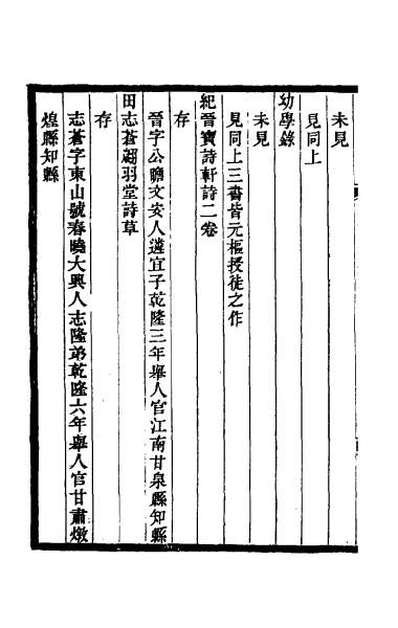 未見
見同上
幼學錄
未見
見同上三書皆元樞授徒之作
紀晉寶詩軒詩二卷
存
晉字公瞻文安人遴宜子乾隆三年舉人官江南甘泉縣知縣
田志蒼翽羽堂詩草
存
志蒼字東山號春曉大興人志隆弟乾隆六年舉人官甘肅燉
煌縣知縣